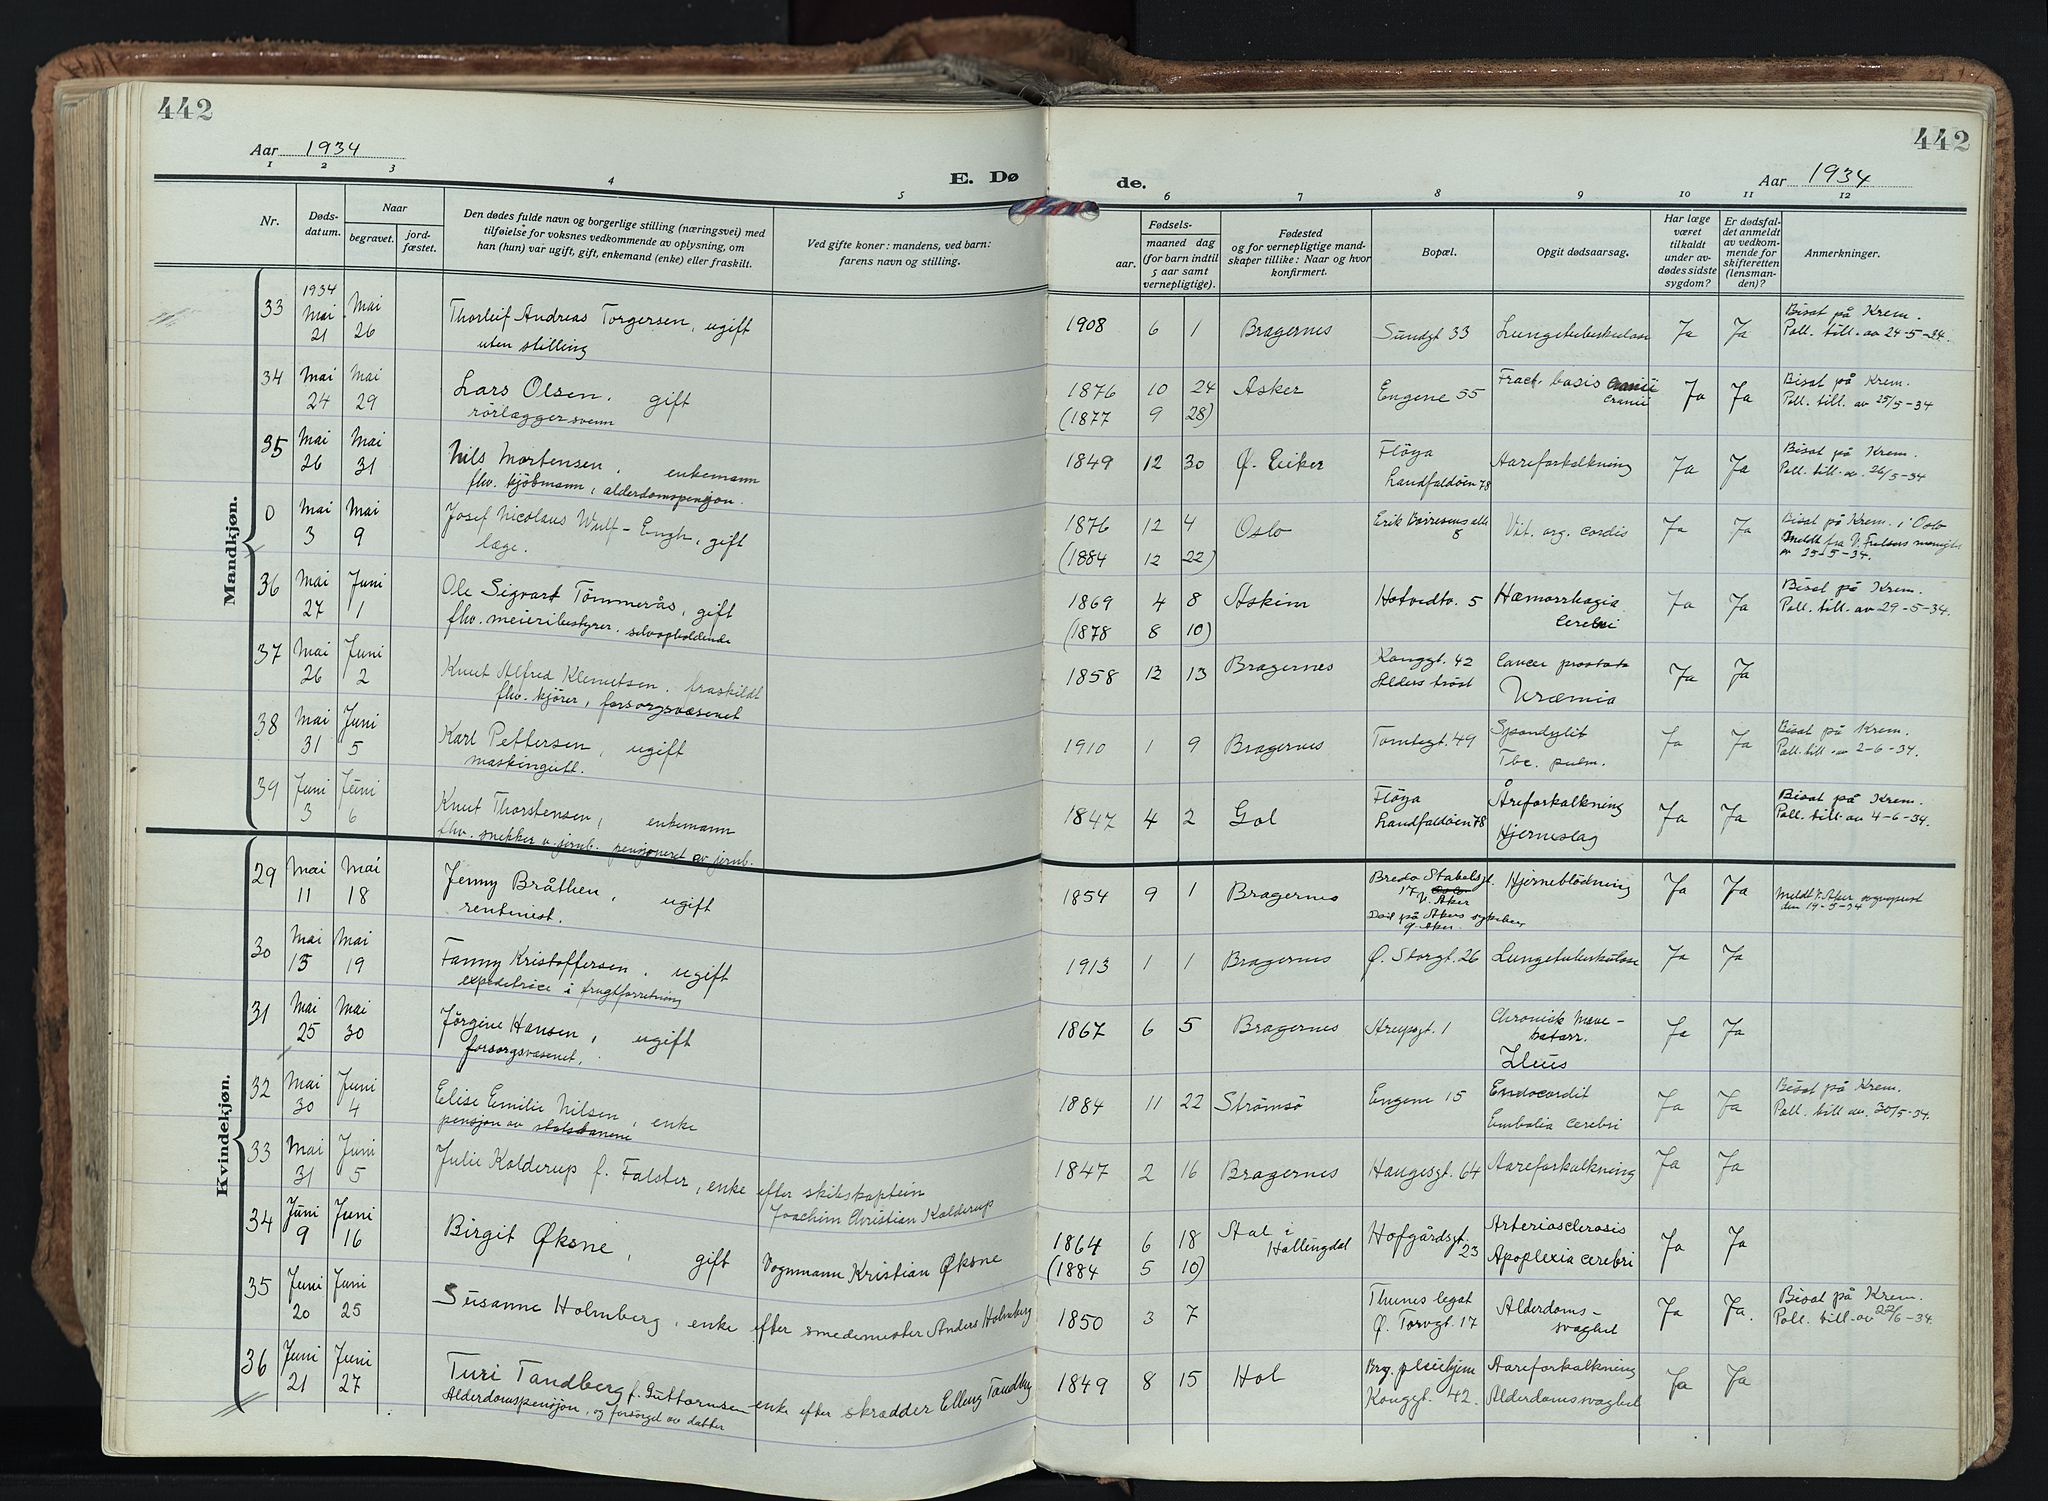 442
442
Aar 1934
E. Dø
de.
Aar 1934
1 2 3 4 5 6 7 8 9 10 11 12
Nr.
Døds-
datum.
Naar
begravet.
jord-
fæstet.
Den dødes fulde navn og borgerlige stilling (næringsvei) med
tilføielse for voksnes vedkommende av oplysning, om
han (hun) var ugift, gift, enkemand (enke) eller fraskilt.
Ved gifte koner: mandens, ved barn:
farens navn og stilling.
Fødsels-
aar.
maaned dag
(for barn indtil
5 aar samt
vernepligtige).
Fødested
og for vernepligtige mand-
skaper tillike: Naar og hvor
konfirmert.
Bopæl.
Opgit dødsaarsag.
Har læge
været
tilkaldt
under av-
dødes sidste
sygdom?
Er dødsfal-
det anmeldt
av vedkom-
mende for
skifteretten
(lensman-
den)?
Anmerkninger.
Mandkjøn.
33 1934 Mai 21 Mai 26 Thorleif Andreas Torgersen, ugift 1908 6 1 Bragernes Sundgt 33 Lungetuberkulose Ja Ja Bisat på Krem.
uten stilling Poll. till. av 24-5-34.
34 Mai 24 Mai 29 Lars Olsen, gift 1876 10 24 Asker Engene 55 Fract. basis cranii Ja Ja Bisat på Krem.
rørlæggersvenn (1877 9 28) Poll. till. av 25/5-34
35 Mai 26 Mai 31 Nils Mortensen, enkemann 1849 12 30 Ø. Eiker Fløya Aareforkalkning Ja Ja Bisat på Krem.
fhv. kjøbmann, alderdomspensjon. Landfaldøen 78 Poll. till. av. 26/5-34
0 Mai 3 Mai 9 Josef Nicolaus Wulf-Engh, gift 1876 12 4 Oslo Erik Børresens alle 8 Vit. org. cordis Ja Ja Bisat på Krem. i Oslo
læge. (1884 12 22) Meldt fra V. Frelsers menigh.
25-5-34.
36 Mai 27 Juni 1 Ole Sigvart Tømmerås, gift 1869 4 8 Askim Hotvedtv. 5 Hæmorrhagia Ja Ja Bisat på Krem.
fhv. meieribestyrer. selvopholdende (1878 8 10) cerebri Poll. till. av 29-5-34.
37 Mai 26 Juni 2 Knut Alfred Klemetsen, fraskildt 1858 12 13 Bragernes Konggt. 42 Cancer prostata Ja Ja
fhv. kjører, forsorgsvæsenet Alders trøst Uræmia
38 Mai 31 Juni 5 Karl Pettersen, ugift 1910 1 9 Bragernes Tomtegt. 49 Spondylit Ja Ja Bisat på Krem.
maskingutt. Tbc. pulm. Poll. till. av 2-6-34.
39 Juni 3 Juni 6 Knut Thorstensen, enkemann 1847 4 2 Gol Fløya Åreforkalkning Ja Ja Bisat på Krem.
fhv. snekker v. jernb. pensjoneret av jernb. Landfaldøen 78 Hjerneslag Poll. till. av 4-6-34.
Kvindekjøn.
29 Mai 11 Mai 18 Jenny Bråthen, ugift 1854 9 1 Bragernes Bredo Stabelsgt. Hjerneblødning Ja Ja Meldt V. Aker sogneprest
rentenist. 17 V. Aker den 19-5-34
Død på Akers sykehus
Ø. Aker.
30 Mai 15 Mai 19 Fanny Kristoffersen, ugift 1913 1 1 Bragernes Ø. Storgt. 26 Lungetuberkulose Ja Ja
expeditrice i frugtforretning
31 Mai 25 Mai 30 Jørgine Hansen, ugift 1867 6 5 Bragernes Arupsgt. 1 Chronisk mave- Ja Ja
forsorgsvæsenet, katarr.
Ileus
32 Mai 30 Juni 4 Elise Emilie Nilsen, enke 1884 11 22 Strømsø Engene 15 Endocardit Ja Ja Bisat på Krem.
pensjon av statsbanene Embolia cerebri Poll. till av. 30/5-34.
33 Mai 31 Juni 5 Julie Kolderup f. Falster, enke efter skibskaptein 1847 2 16 Bragernes Haugesgt. 64 Aareforkalkning Ja Ja
Joachim Christian Kolderup
34 Juni 9 Juni 16 Birgit Øksne, gift Vognmann Kristian Øksne 1864 6 18 Aal i Hallingdal Hofgårdsgt. 23 Arteriosclerosis Ja Ja
(1884 5 10) Apoplexia cerebri
35 Juni 20 Juni 25 Susanne Holmberg, enke efter smedemester Anders Holmberg 1850 3 7 Thunes legat Alderdoms- Ja Ja. Bisat på Krem.
Ø. Torvgt. 17 svaghet Poll. till. av 22/6-34.
36 Juni 21 Juni 27 Turi Tandberg f. Guttormsen enke efter skrædder Elling Tandberg 1849 8 15 Hol Brg. pleiehjem Aareforkalkning Ja Ja
Alderdomspensjon, og forsørget av datter Konggt. 42. Alderdomssvaghet